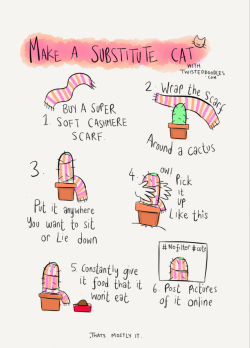 MAKE A SUBSTITUTE CAT
WITH
TWISTEDDOODLES
.COM
BUY A SUPER
1. SOFT CASHMERE
SCARF.
2. Wrap the Scarf
Around a cactus
3.
Put it anywhere
You want to sit
or Lie down
4. OW!
Pick
it
up
Like this
5. Constantly give
it food that it
won't eat
#Nofilter #cats
6. Post Pictures
of it online
THATS MOSTLY IT.